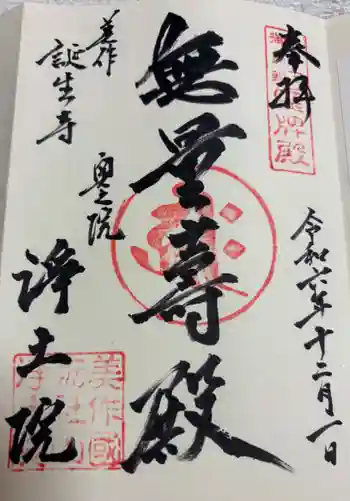 奉拝
令和六年十二月一日
無量壽殿
美作
誕生寺
奥之院
浄土院
美作國